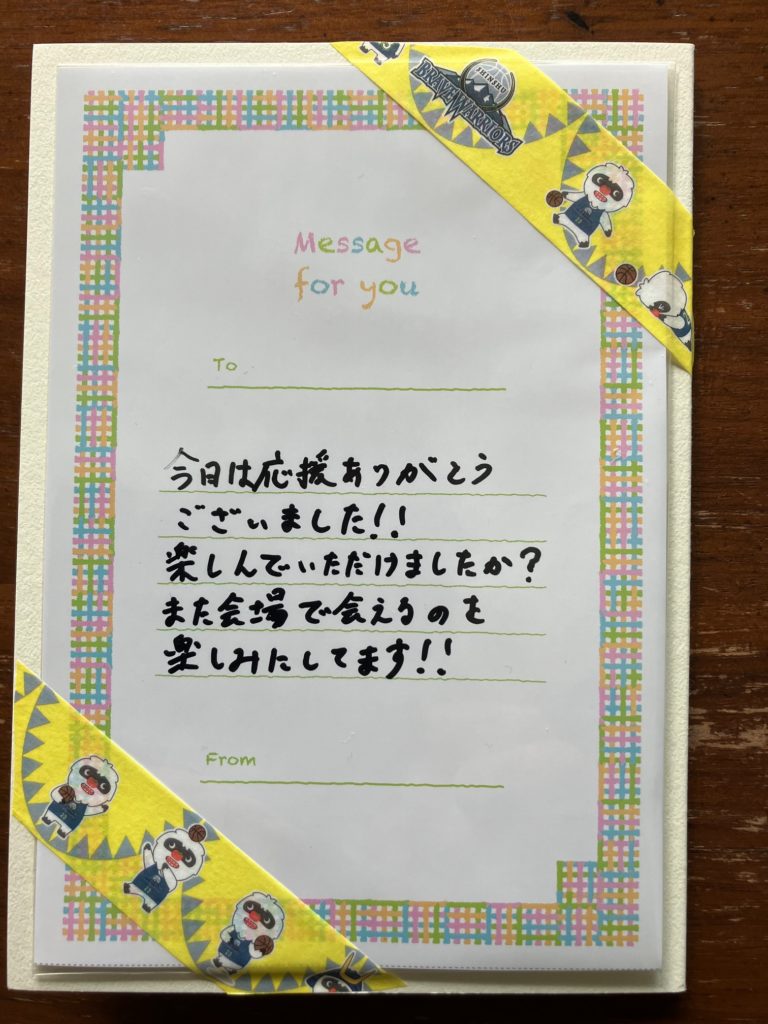 SHINSHU
BRAVE WARRIORS
Message
for you
To
今日は応援ありがとう
ございました!!
楽しんでいただけましたか?
また会場で会えるのを
楽しみにしてます!!
From